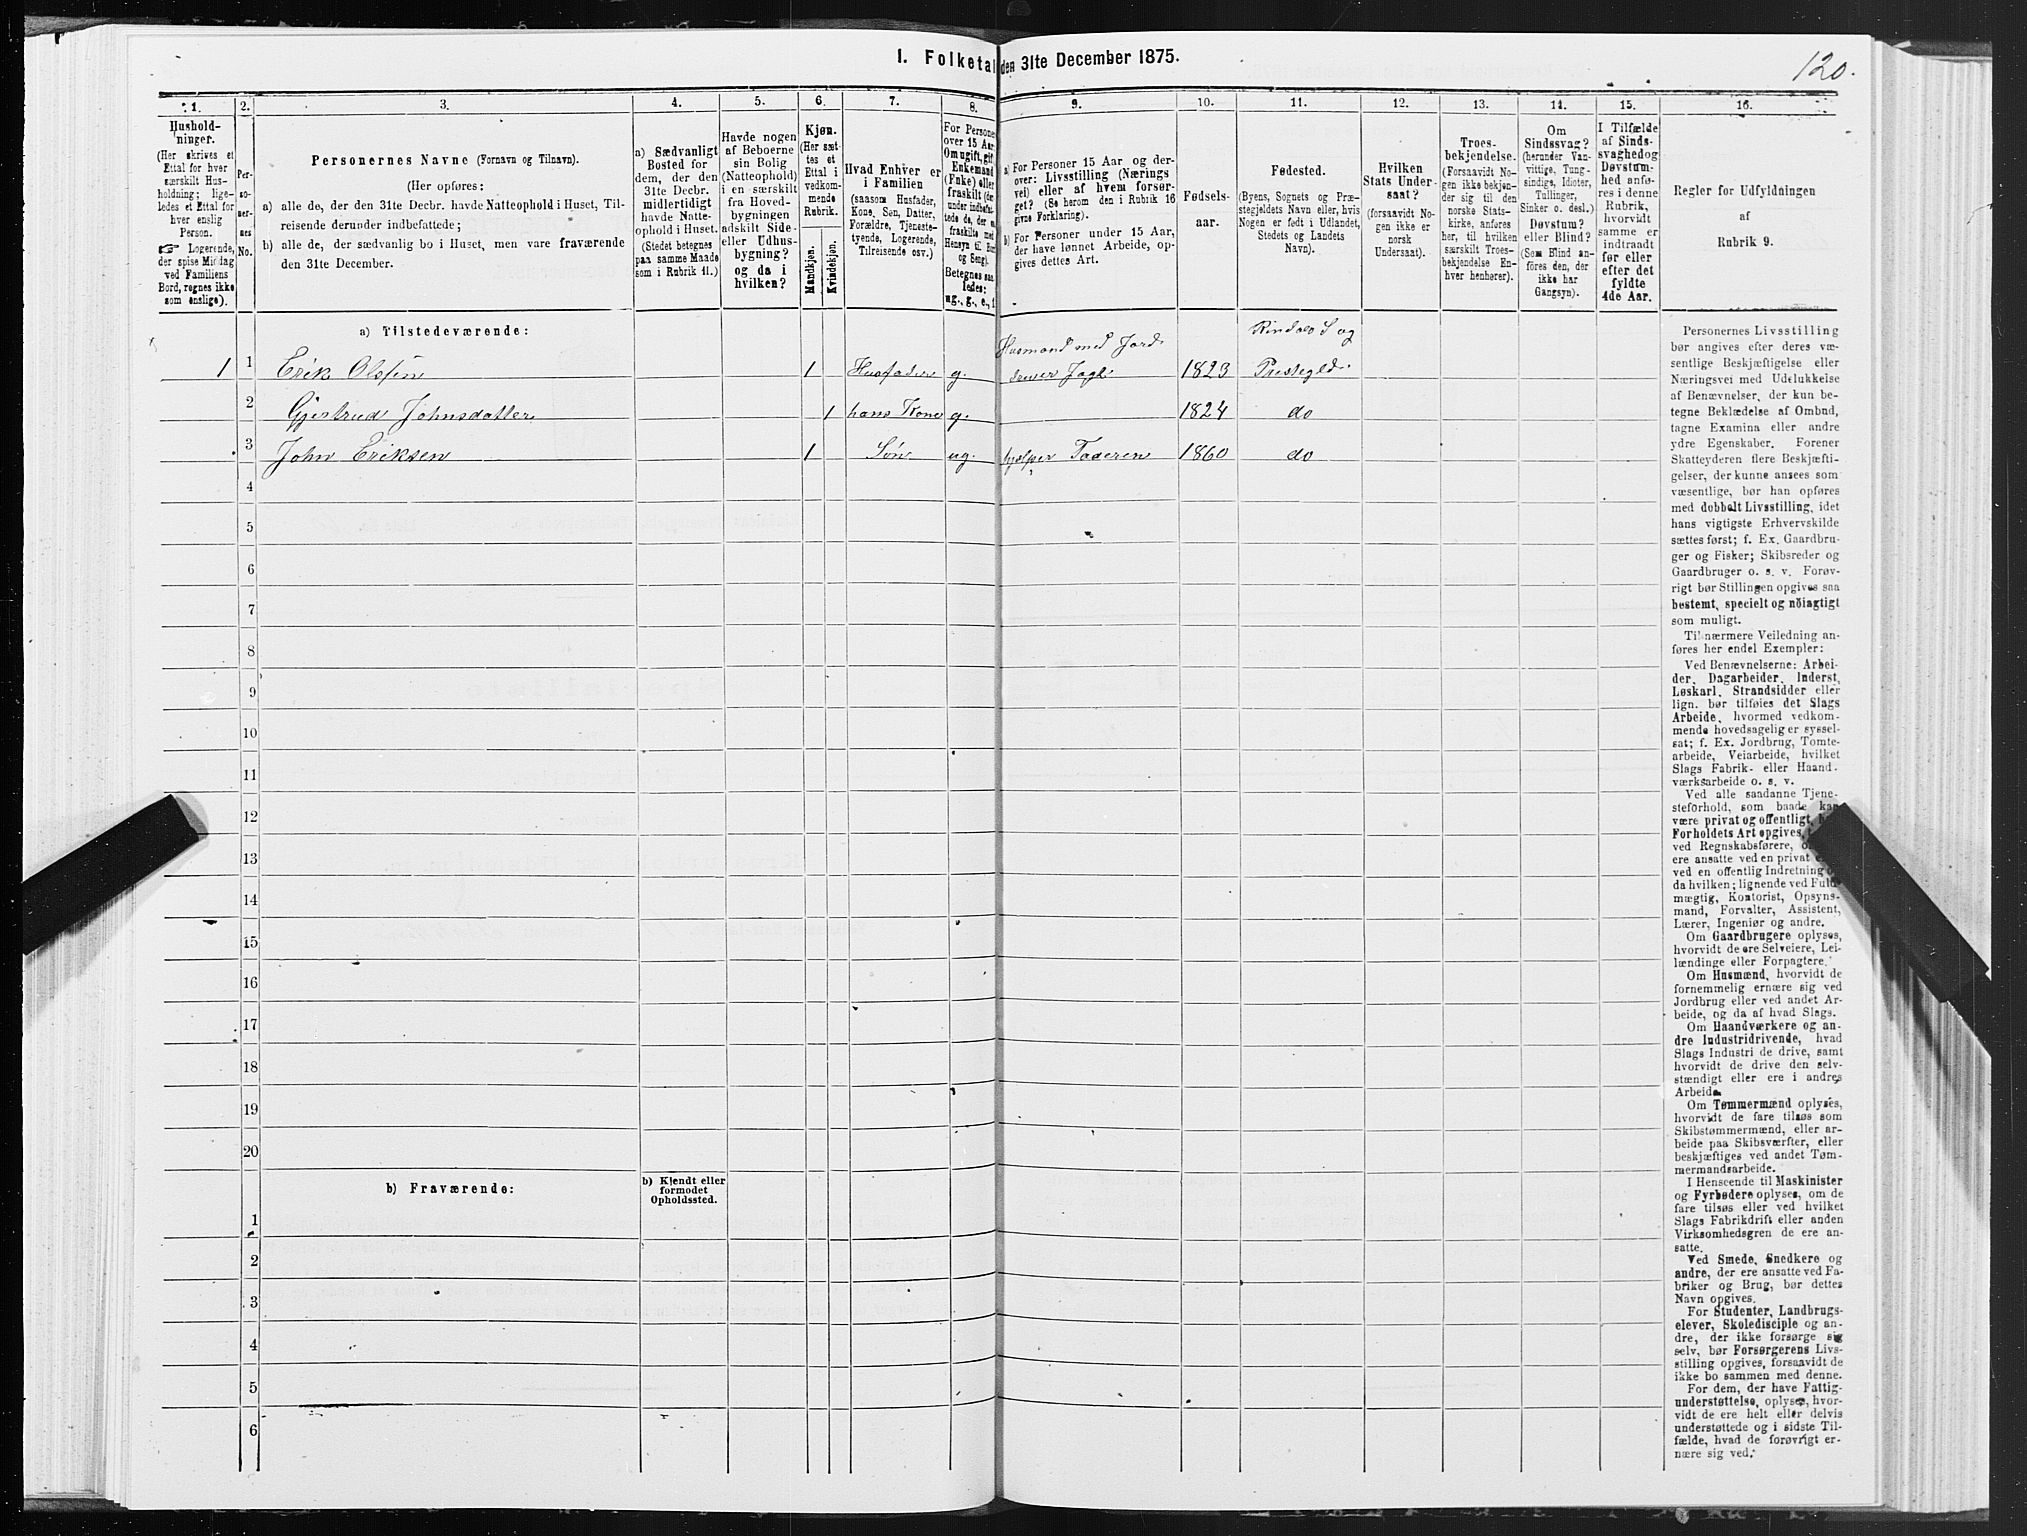 I. Folketal den 31te December 1875.
120.
1. 2. 3. 4. 5. 6. 7. 8. 9. 10. 11. 12. 13. 14. 15. 16.
Hushold-
ninger.
(Her skrives et
Ettal for hver
særskilt Hus-
holdning; lige-
ledes et Ettal for
hver enslig
Person.
☞ Logerende,
der spise Middag
ved Familiens
Bord, regnes ikke
som enslige).
Per-
so-
ner-
nes
No.
Personernes Navne (Fornavn og Tilnavn).
(Her opføres:
a) alle de, der den 31te Decbr. havde Natteophold i Huset, Til-
reisende derunder indbefattede;
b) alle de, der sædvanlig bo i Huset, men vare fraværende
den 31te December.
a) Sædvanligt
Bosted for
dem, der den
31te Decbr.
midlertidigt
havde Natte-
ophold i Huset.
(Stedet betegnes
paa samme Maade
som i Rubrik 11.)
Havde nogen
af Beboerne
sin Bolig
(Natteophold)
i en særskilt
fra Hoved-
bygningen
adskilt Side-
eller Udhus-
bygning?
og da i
hvilken?
Kjøn.
(Her sæt-
tes et
Ettal i
vedkom-
mende
Rubrik.
Mandkjøn.
Kvindekjøn.
Hvad Enhver er
i Familien
(saasom Husfader,
Kone, Søn, Datter,
Forældre, Tjeneste-
tyende, Logerende,
Tilreisende osv.)
For Personer
over 15 Aar
Om ugift, gift
Enkemand
(Enke) eller
fraskilt (der-
under indbefat-
tede de, der ere
fraskilte med
Hensyn til Bord
og Seng).
Betegnes saa-
ledes:
ug., g., e., f.
a) For Personer 15 Aar og der-
over: Livsstilling (Nærings
vei) eller af hvem forsør-
get? (Se herom den i Rubrik 16
givne Forklaring).
b) For Personer under 15 Aar,
der have lønnet Arbeide, op-
gives dettes Art.
Fødsels-
aar.
Fødested.
(Byens, Sognets og Præ-
stegjeldets Navn eller, hvis
Nogen er født i Udlandet,
Stedets og Landets
Navn).
Hvilken
Stats Under-
saat?
(forsaavidt No-
gen ikke er
norsk
Undersaat).
Troes-
bekjendelse.
(Forsaavidt No-
gen ikke bekjen-
der sig til den
norske Stats-
kirke, anføres
her, til hvilken
særskilt Troes-
bekjendelse En-
hver henhører).
Om
Sindssvag?
(herunder Van-
vittige, Tung-
sindige, Idioter,
Tullinger,
Sinker o. desl.)
Døvstum?
eller Blind?
(Som Blind an-
føres den, der
ikke har
Gangsyn).
I Tilfælde
af Sinds-
svaghed og
Døvstum-
hed anfø-
res i denne
Rubrik,
hvorvidt
samme er
indtraadt
før eller
efter det
fyldte
4de Aar.
Regler for Udfyldningen
af
Rubrik 9.
a) Tilstedeværende:
1 1 Erik Olsen 1 Husfader g. Husmand med Jord 1823 Rindals S og Prestegld.
2 Gjertrud Johnsdatter 1 hans Kone g. 1824 do
3 John Eriksen 1 Søn ug. hjelper Faderen 1860 do
4
5
6
7
8
9
10
11
12
13
14
15
16
17
18
19
20
b) Fraværende:
b) Kjendt eller
formodet
Opholdssted.
1
2
3
4
5
6
Personernes Livsstilling
bør angives efter deres væ-
sentlige Beskjæftigelse eller
Næringsvei med Udelukkelse
af Benævnelser, der kun be-
tegne Beklædelse af Ombud,
tagne Examina eller andre
ydre Egenskaber. Forener
Skatteyderen flere Beskjæfti-
gelser, der kunne ansees som
væsentlige, bør han opføres
med dobbelt Livsstilling, idet
hans vigtigste Erhvervskilde
sættes først; f. Ex. Gaardbru-
ger og Fisker; Skibsreder og
Gaardbruger o. s. v. Forøv-
rigt bør Stillingen opgives saa
bestemt, specielt og nøiagtigt
som muligt.
Til nærmere Veiledning an-
føres her endel Exempler:
Ved Benævnelserne: Arbei-
der, Dagarbeider, Inderst,
Løskarl, Strandsidder eller
lign. bør tilføies det Slags
Arbeide, hvormed vedkom-
mende hovedsagelig er syssel-
sat; f. Ex. Jordbrug, Tomte-
arbeide, Veiarbeide, hvilket
Slags Fabrik- eller Haand-
værksarbeide o. s. v.
Ved alle saadanne Tjene-
steforhold, som baade kan
være privat og offentligt,
Forholdets Art opgives,
ved Regnskabsførere,
ere ansatte ved en privat
ved en offentlig Indretning
da hvilken; lignende ved Fuld-
mægtig, Kontorist, Opsyns-
mand, Forvalter, Assistent,
Lærer, Ingeniør og andre.
Om Gaardbrugere oplyses,
hvorvidt de ere Selveiere, Lei-
lændinge eller Forpagtere.
Om Husmænd, hvorvidt de
fornemmelig ernære sig ved
Jordbrug eller ved andet Ar-
beide, og da af hvad Slags.
Om Haandværkere og an-
dre Industridrivende, hvad
Slags Industri de drive, samt
hvorvidt de drive den selv-
stændigt eller ere i andres
Arbeide.
Om Tømmermænd oplyses,
hvorvidt de fare tilsøs som
Skibstømmermænd, eller ar-
beide paa Skibsværfter, eller
beskjæftiges ved andet Tøm-
mermandsarbeide.
I Henseende til Maskinister
og Fyrbødere oplyses, om de
fare tilsøs eller ved hvilket
Slags Fabrikdrift eller anden
Virksomhedsgren de ere an-
satte.
Ved Smede, Snedkere og
andre, der ere ansatte ved Fa-
briker og Brug, bør dettes
Navn opgives.
For Studenter, Landbrugs-
elever, Skoledisciple og an-
dre, der ikke forsørge sig
selv, bør Forsørgerens Livs-
stilling opgives, forsaavidt de
ikke bo sammen med denne.
For dem, der have Fattig-
understøttelse, oplyses, hvor-
vidt de ere helt eller delvis
understøttede og i sidste Til-
fælde, hvad de forøvrigt er-
nære sig ved.